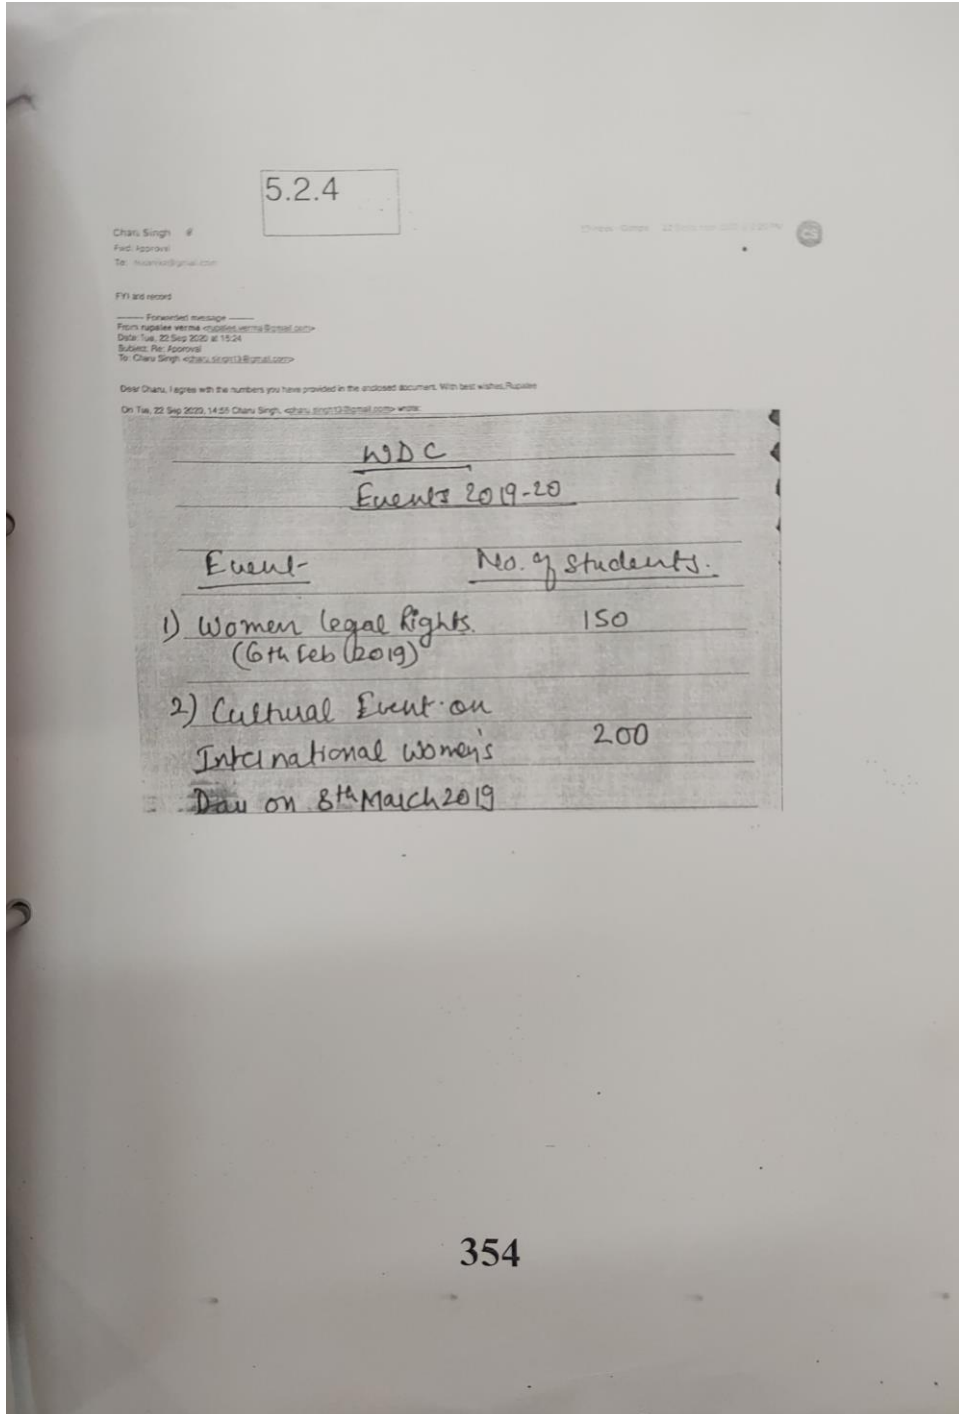 5.2.4
Charu Singh
Fwd: Approval
To:
FYI and record
-------- Forwarded message --------
From: rupalee verma
Date: Tue, 22 Sep 2020 at 15:24
Subject: Re: Approval
To: Charu Singh
Dear Charu, I agree with the numbers you have provided in the enclosed document. With best wishes, Rupalee
On Tue, 22 Sep 2020, 14:55 Charu Singh, wrote:
CS
WDC
Events 2019-20
Event No. of Students.
1) Women legal Rights. 150
(6th Feb 2019)
2) Cultural Event on
International Women's 200
Day on 8th March 2019
354